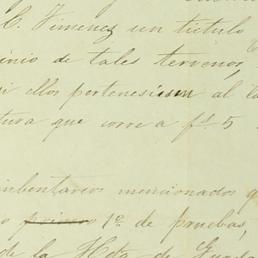 C. Jimenez un titulo
inio de tales terrenos,
i ellos pertenesiesen al
tura que corre a fs. 5
inbentarios mencionados q
o primero 1º de pruebas,
de la Hda de